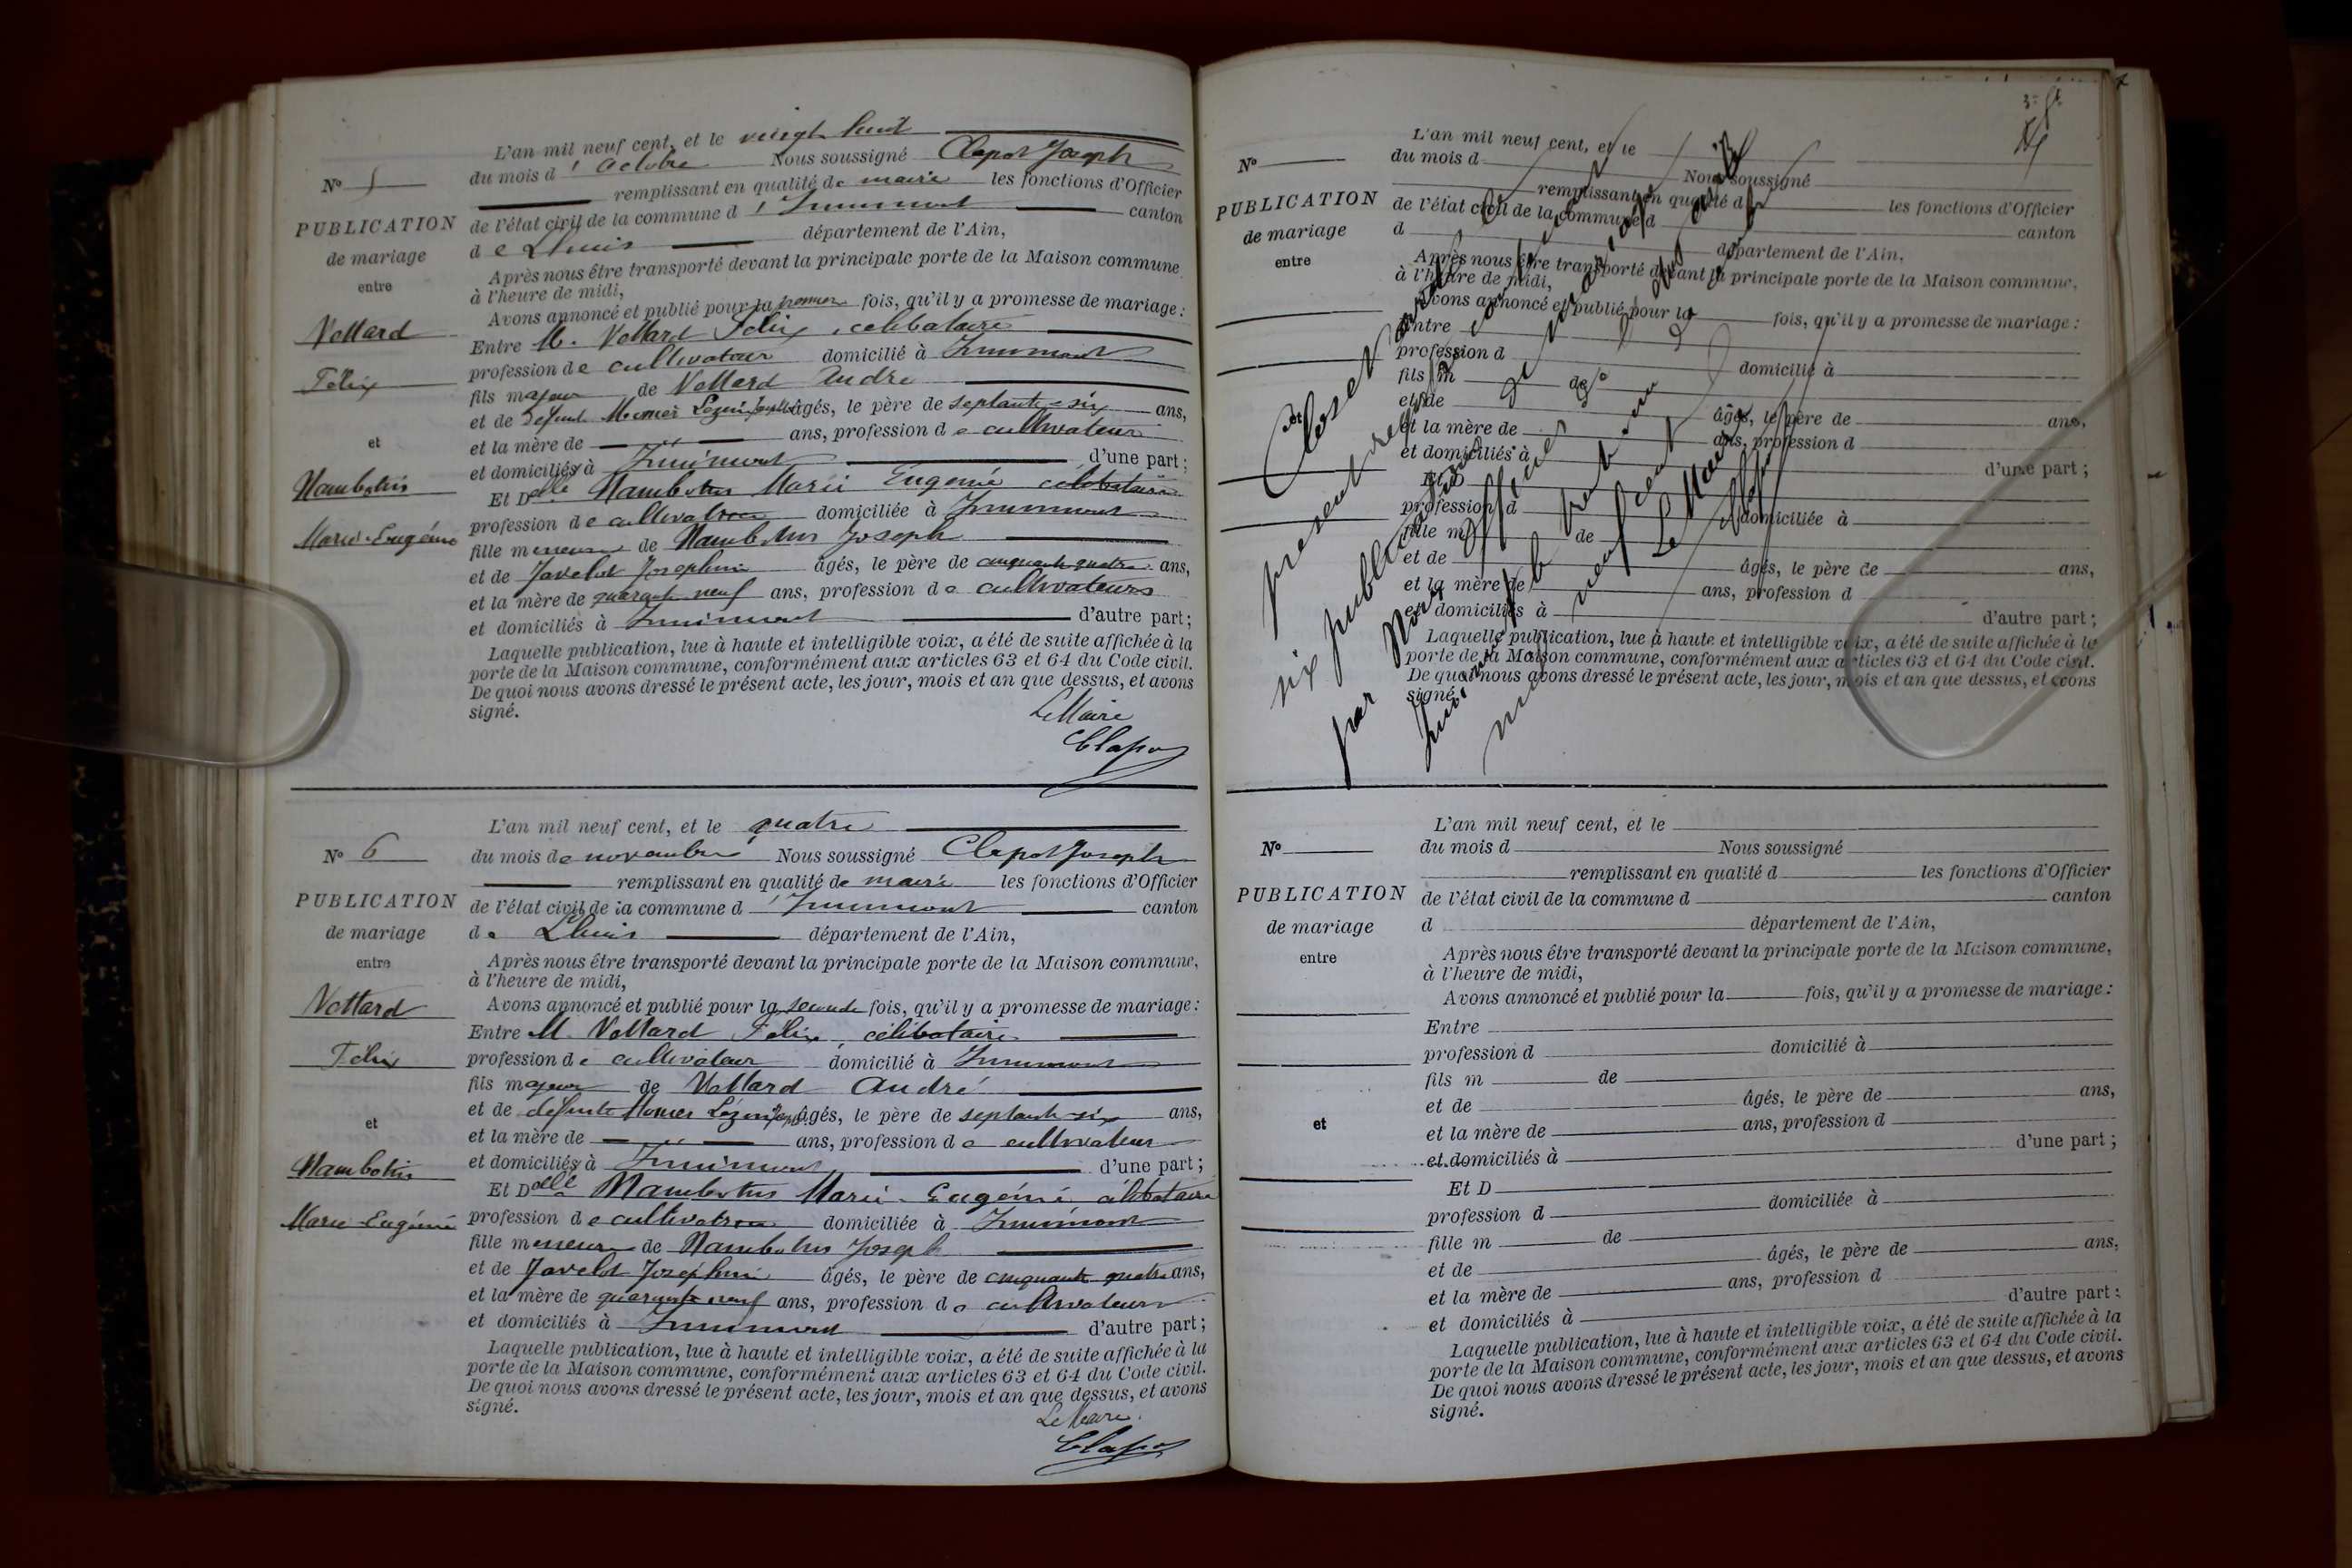 L'an mil neuf cent, et le vingt huit
N° 5
du mois d'octobre Nous soussigné Clapot Joseph
remplissant en qualité de maire les fonctions d'Officier
PUBLICATION
de mariage
entre
Vettard
Félix
et
Nambotin
Marie-Eugénie
de l'état civil de la commune d'Innimont canton
de Lhuis département de l'Ain,
Après nous être transporté devant la principale porte de la Maison commune
à l'heure de midi,
Avons annoncé et publié pour la première fois, qu'il y a promesse de mariage :
Entre M. Vettard Félix, célibataire
profession de cultivateur domicilié à Innimont
fils majeur de Vettard André
et de défunte âgés, le père de septante-six ans,
et la mère de ans, profession de cultivateur
et domiciliés à Innimont d'une part ;
Et Delle Nambotin Marie Eugénie célibataire
profession de cultivatrice domiciliée à Innimont
fille mineure de Nambotin Joseph
et de Javelot Joséphine âgés, le père de cinquante quatre ans,
et la mère de quarante neuf ans, profession de cultivateurs
et domiciliés à Innimont d'autre part ;
Laquelle publication, lue à haute et intelligible voix, a été de suite affichée à la
porte de la Maison commune, conformément aux articles 63 et 64 du Code civil.
De quoi nous avons dressé le présent acte, les jour, mois et an que dessus, et avons
signé.
Le Maire
Clapot
L'an mil neuf cent, et le quatre
N° 6
du mois de novembre Nous soussigné Clapot Joseph
remplissant en qualité de maire les fonctions d'Officier
PUBLICATION
de mariage
entre
Vettard
Félix
et
Nambotin
Marie-Eugénie
de l'état civil de la commune d'Innimont canton
de Lhuis département de l'Ain,
Après nous être transporté devant la principale porte de la Maison commune,
à l'heure de midi,
Avons annoncé et publié pour la seconde fois, qu'il y a promesse de mariage :
Entre M. Vettard Félix, célibataire
profession de cultivateur domicilié à Innimont
fils majeur de Vettard André
et de défunte âgés, le père de septante-six ans,
et la mère de ans, profession de cultivateur
et domiciliés à Innimont d'une part ;
Et Delle Nambotin Marie-Eugénie célibataire
profession de cultivatrice domiciliée à Innimont
fille mineure de Nambotin Joseph
et de Javelot Joséphine âgés, le père de cinquante quatre ans,
et la mère de quarante neuf ans, profession de cultivateurs
et domiciliés à Innimont d'autre part ;
Laquelle publication, lue à haute et intelligible voix, a été de suite affichée à la
porte de la Maison commune, conformément aux articles 63 et 64 du Code civil.
De quoi nous avons dressé le présent acte, les jour, mois et an que dessus, et avons
signé.
Le Maire
Clapot
L'an mil neuf cent, et le
N°
du mois d Nous soussigné
remplissant en qualité d les fonctions d'Officier
PUBLICATION
de mariage
entre
de l'état civil de la commune d canton
d département de l'Ain,
Après nous être transporté devant la principale porte de la Maison commune,
à l'heure de midi,
Avons annoncé et publié pour la fois, qu'il y a promesse de mariage :
Entre
profession d domicilié à
fils m de
et de âgés, le père de ans,
et
et la mère de ans, profession d
et domiciliés à d'une part ;
Et D
profession d domiciliée à
fille m de
et de âgés, le père de ans,
et la mère de ans, profession d
et domiciliés à d'autre part ;
Laquelle publication, lue à haute et intelligible voix, a été de suite affichée à la
porte de la Maison commune, conformément aux articles 63 et 64 du Code civil.
De quoi nous avons dressé le présent acte, les jour, mois et an que dessus, et avons
signé.
Clos et arrêté le
présent registre contenant
six publications de mariage
par Nous officier de
trente un
mil neuf cent
Le Maire
Clapot
L'an mil neuf cent, et le
N°
du mois d Nous soussigné
remplissant en qualité d les fonctions d'Officier
PUBLICATION
de mariage
entre
de l'état civil de la commune d canton
d département de l'Ain,
Après nous être transporté devant la principale porte de la Maison commune,
à l'heure de midi,
Avons annoncé et publié pour la fois, qu'il y a promesse de mariage :
Entre
profession d domicilié à
fils m de
et de âgés, le père de ans,
et
et la mère de ans, profession d
et domiciliés à d'une part ;
Et D
profession d domiciliée à
fille m de
et de âgés, le père de ans,
et la mère de ans, profession d
et domiciliés à d'autre part ;
Laquelle publication, lue à haute et intelligible voix, a été de suite affichée à la
porte de la Maison commune, conformément aux articles 63 et 64 du Code civil.
De quoi nous avons dressé le présent acte, les jour, mois et an que dessus, et avons
signé.